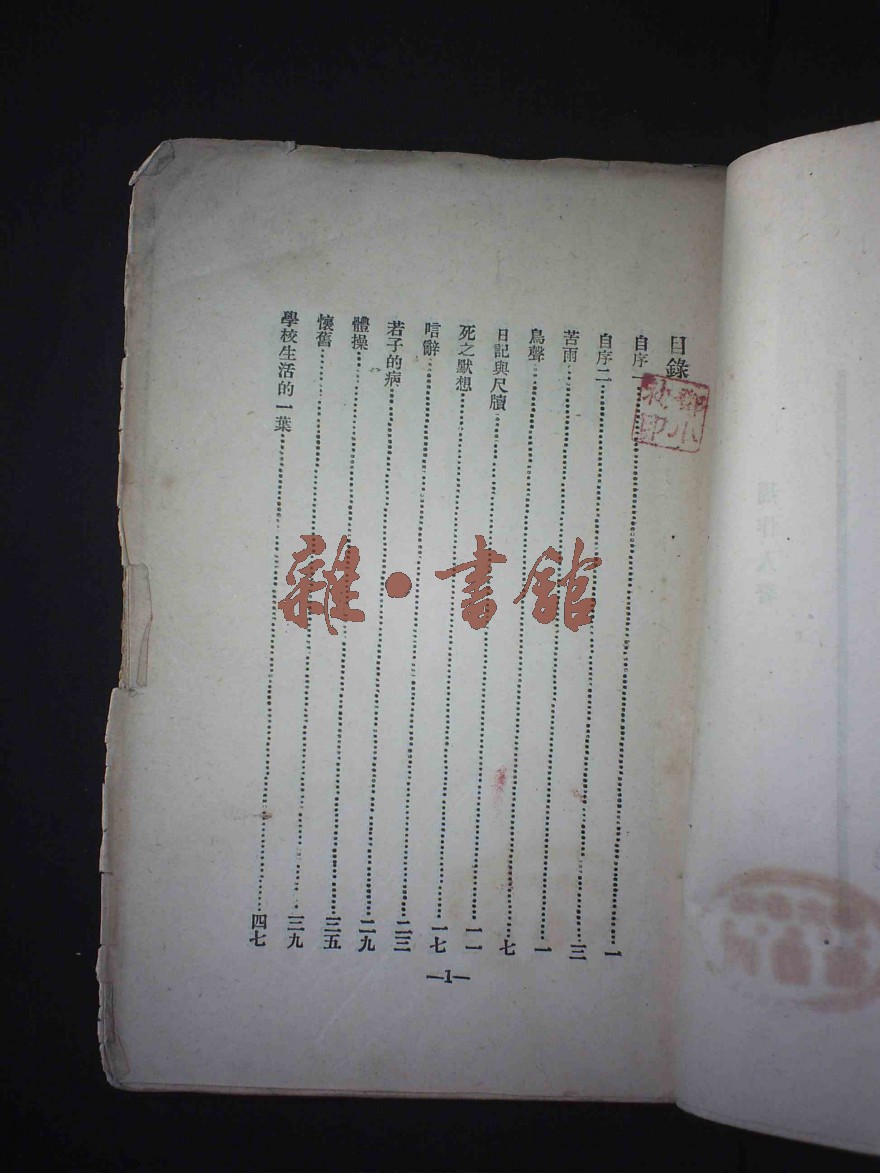 目錄
自序一……一
自序二……三
苦雨……一
鳥聲……七
日記與尺牘……一一
死之默想……一七
唁辭……二三
若子的病……二九
體操……三五
懷舊……三九
學校生活的一葉……四七
—1—
雜·書館